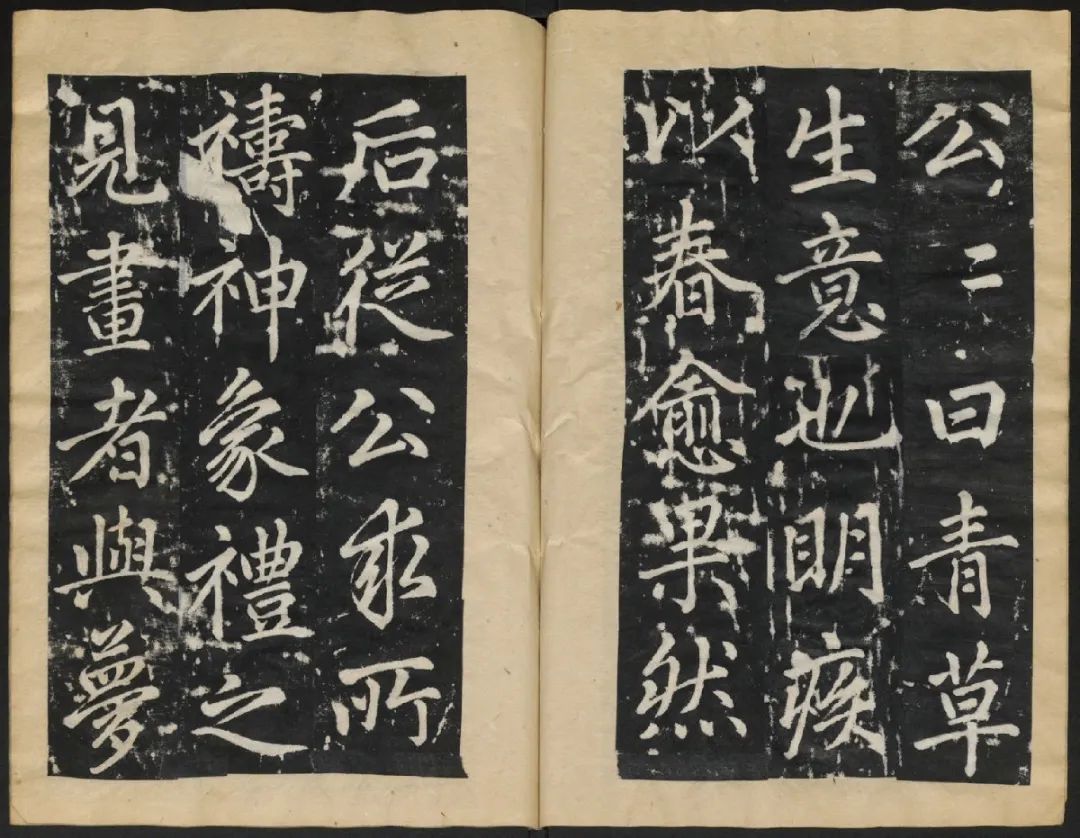 公二曰青草
生意也明疾
以春愈果然
后從公求所
禱神象禮之
見畫者與夢